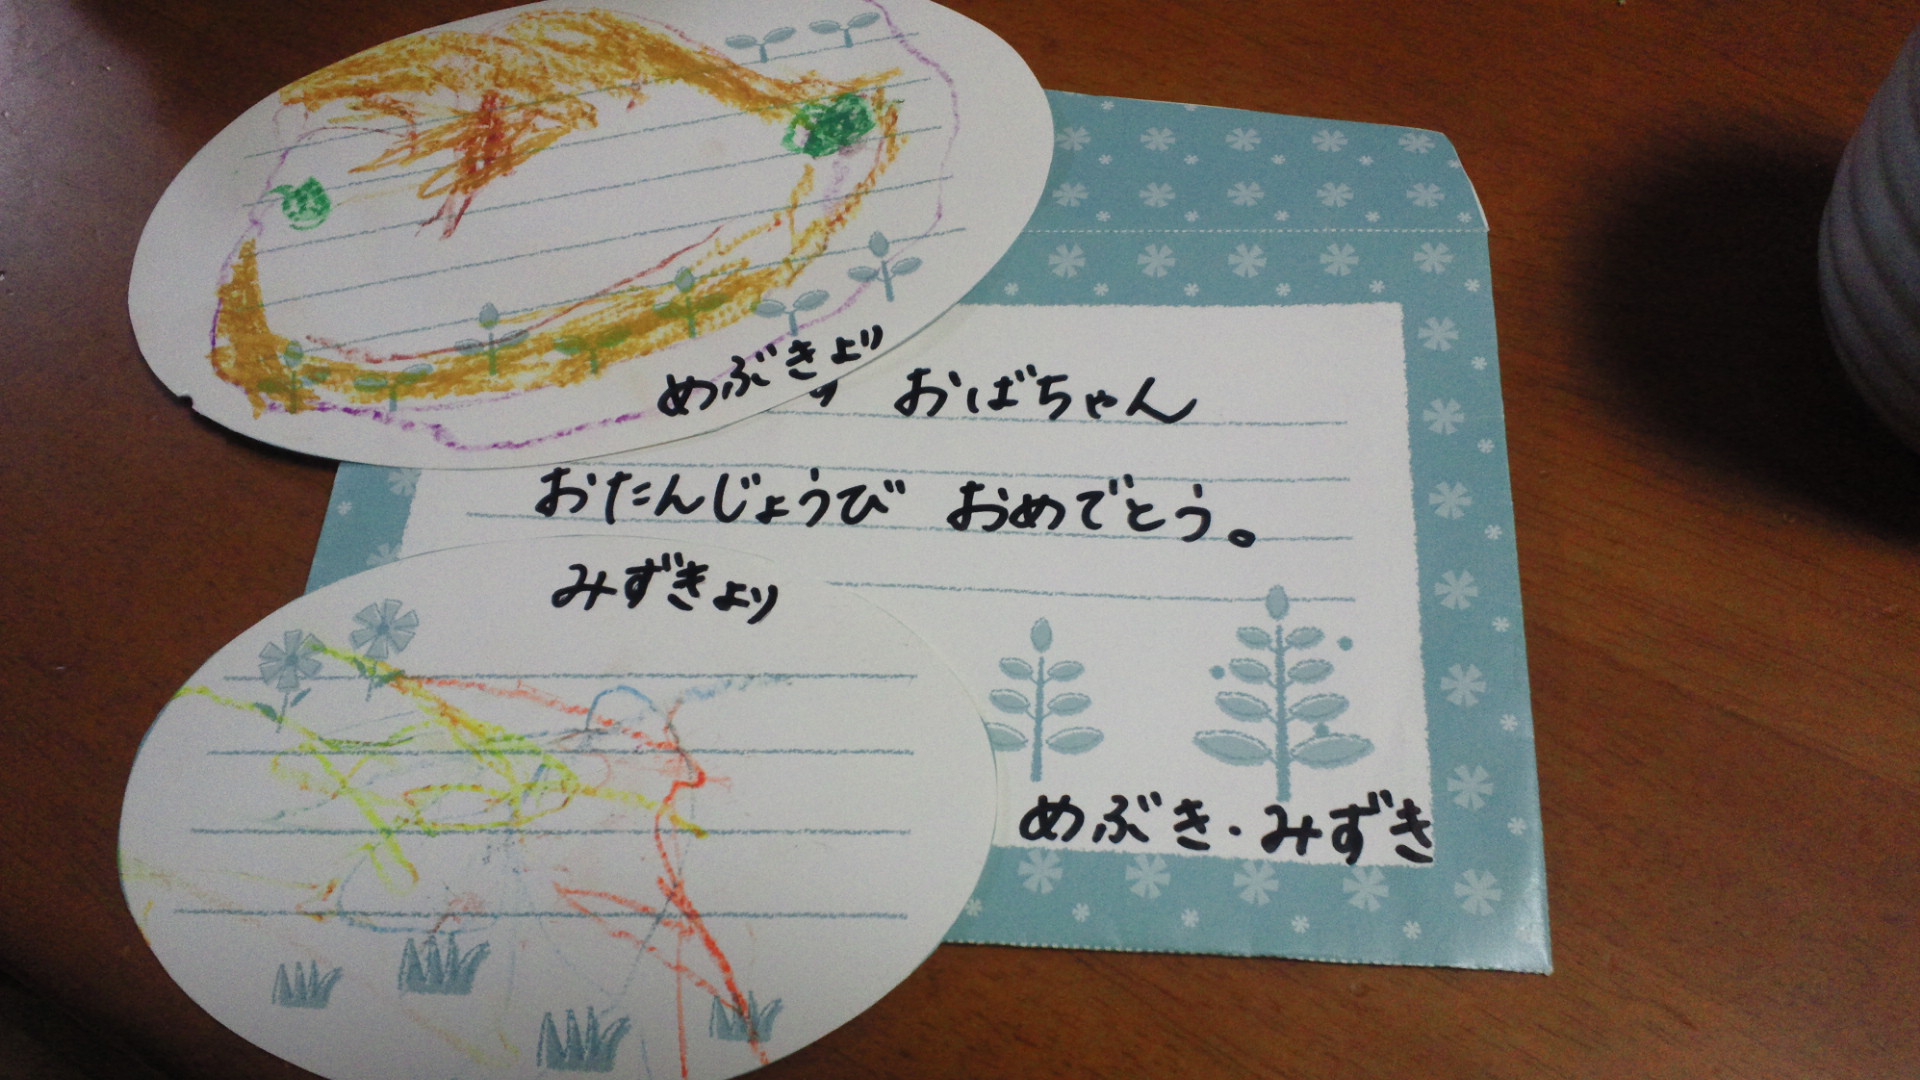 めぶきより
おばちゃん
おたんじょうび おめでとう。
みずきより
めぶき・みずき